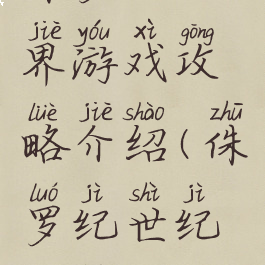 jiè yóu xì gōng
界游戏攻
lüè jiè shào zhū
略介绍(侏
luó jì shì jì
罗纪世纪